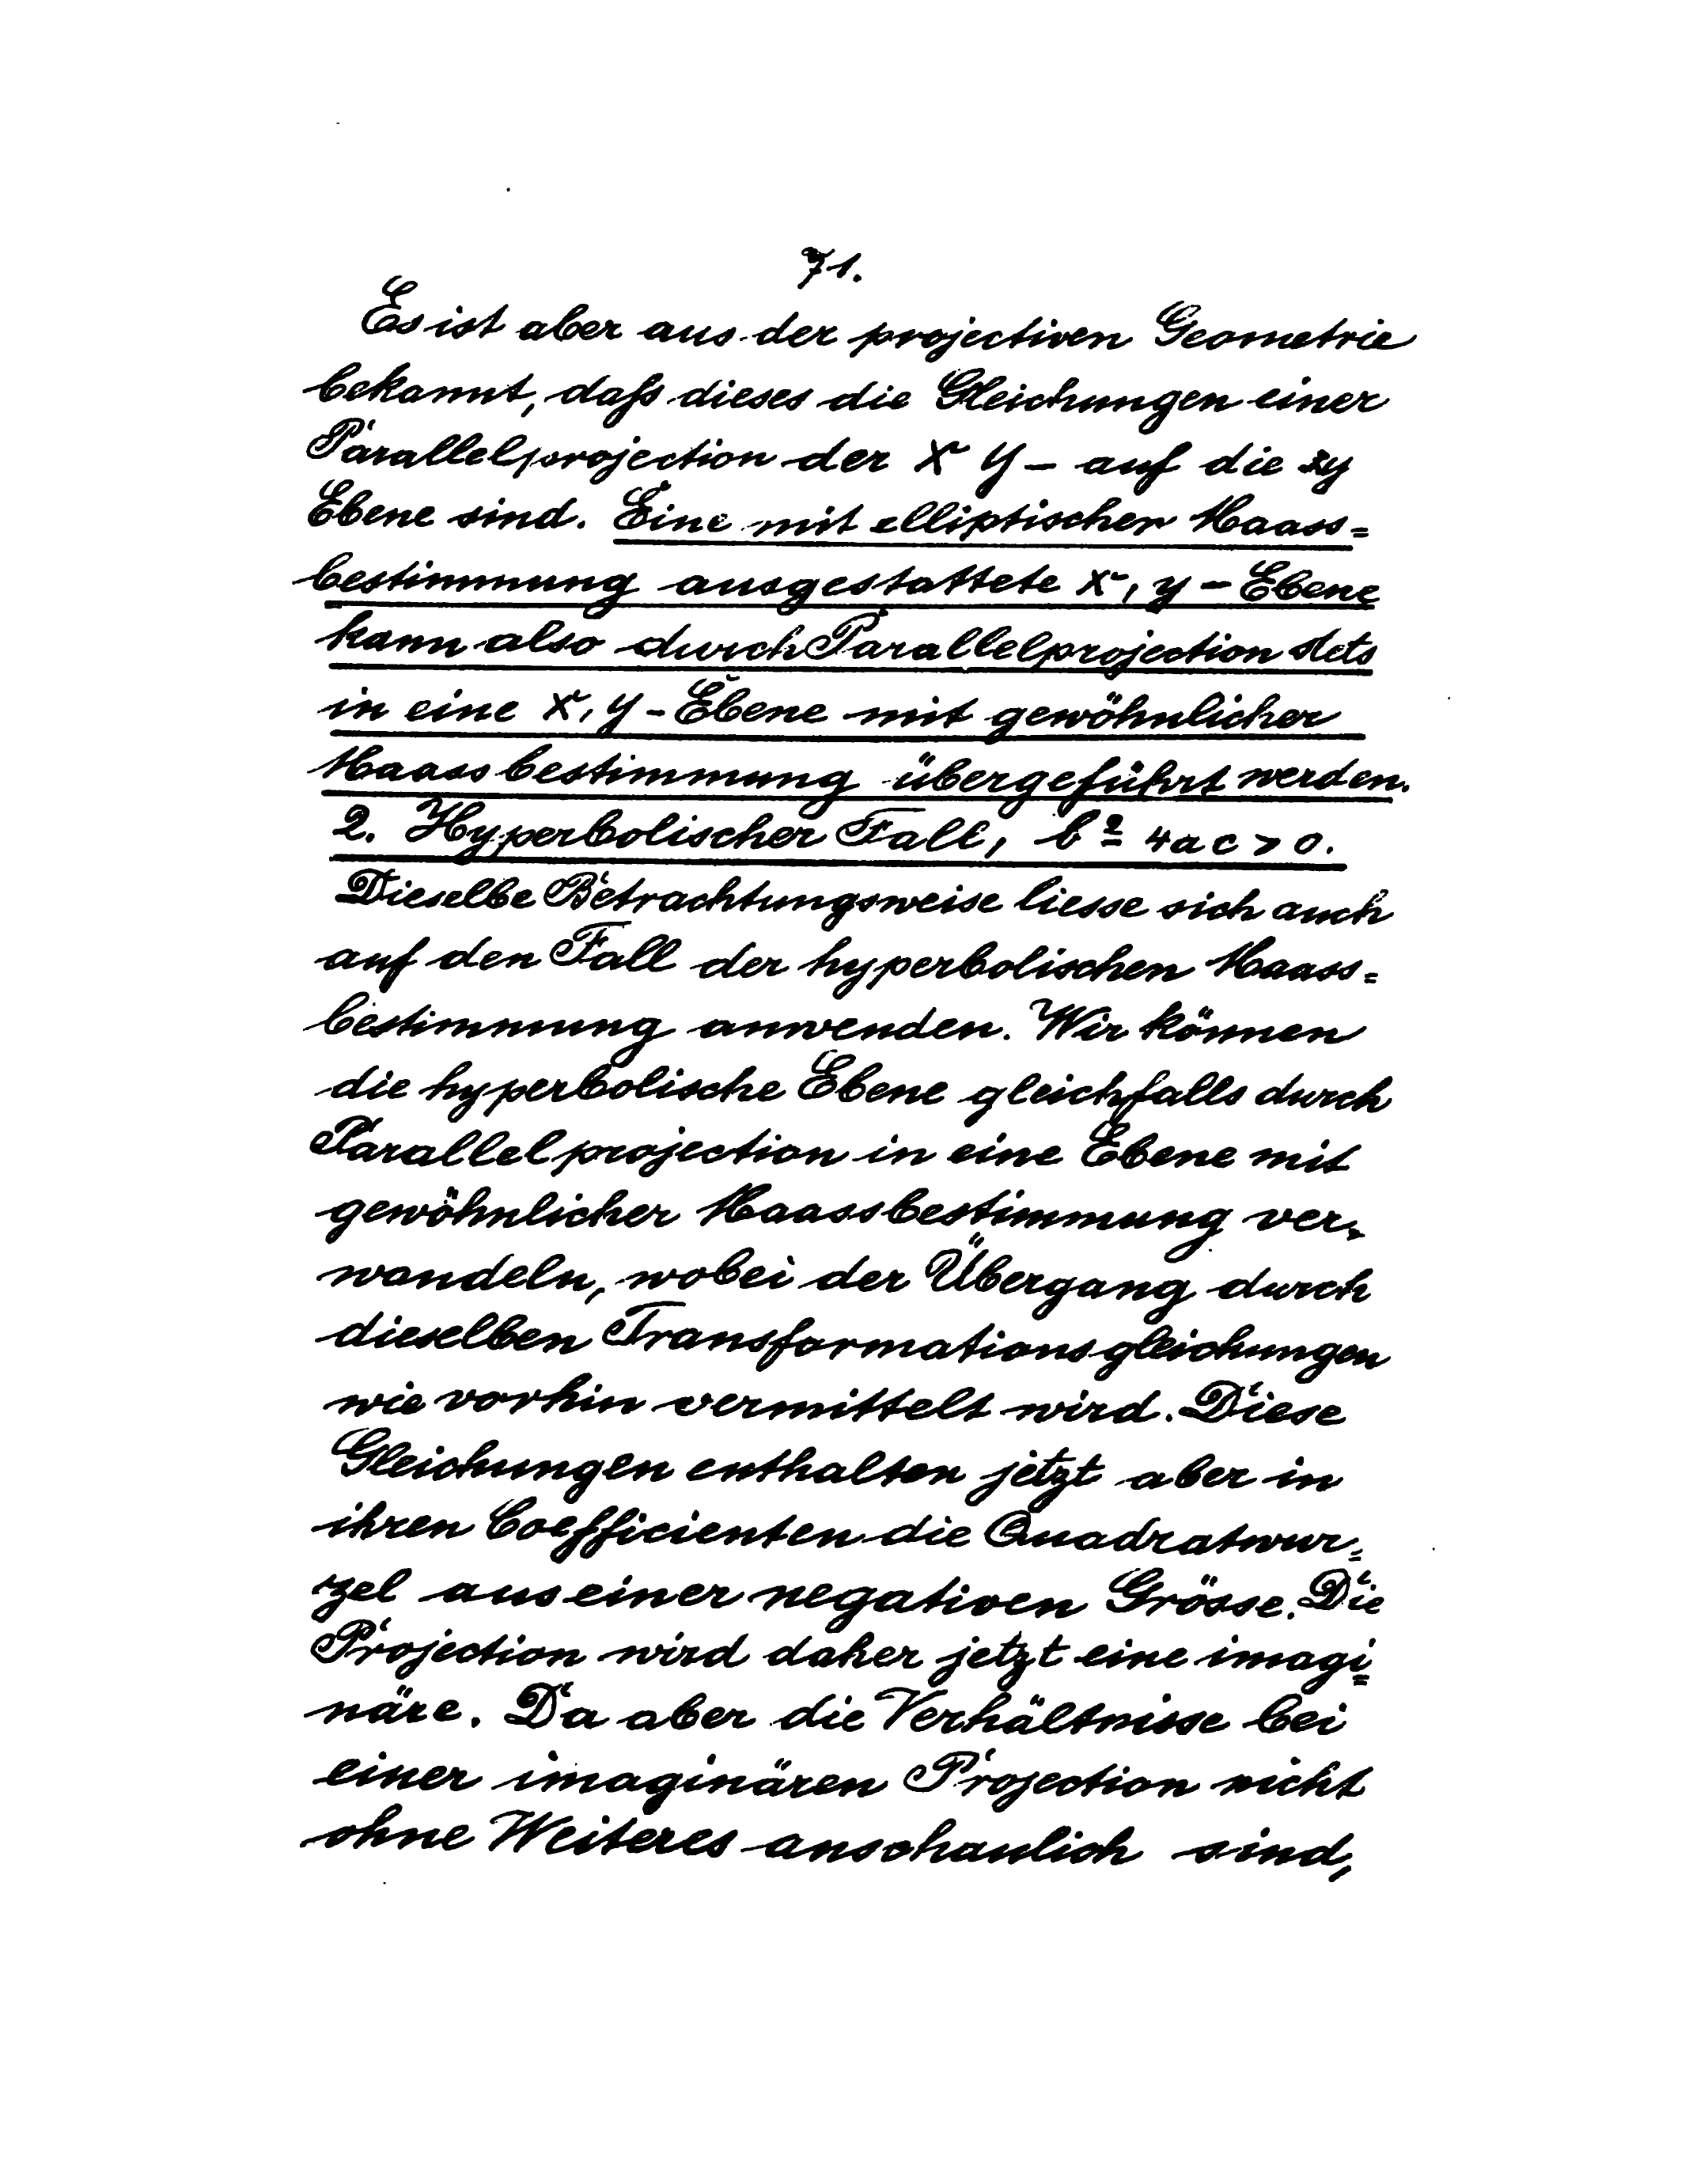 71.
Es ist aber aus der projectiven Geometrie
bekannt, daß dieses die Gleichungen einer
Parallelprojection der X Y - auf die xy
Ebene sind. Eine mit elliptischer Maass=
bestimmung ausgestattete x, y - Ebene
kann also durch Parallelprojection stets
in eine X, Y - Ebene mit gewöhnlicher
Maassbestimmung übergeführt werden.
2. Hyperbolischer Fall, b² - 4ac > 0.
Dieselbe Betrachtungsweise liesse sich auch
auf den Fall der hyperbolischen Maass=
bestimmung anwenden. Wir können
die hyperbolische Ebene gleichfalls durch
Parallelprojection in eine Ebene mit
gewöhnlicher Maassbestimmung ver=
wandeln, wobei der Übergang durch
dieselben Transformationsgleichungen
wie vorhin vermittelt wird. Diese
Gleichungen enthalten jetzt aber in
ihren Coefficienten die Quadratwur=
zel aus einer negativen Grösse. Die
Projection wird daher jetzt eine imagi=
näre. Da aber die Verhältnisse bei
einer imaginären Projection nicht
ohne Weiteres anschaulich sind,